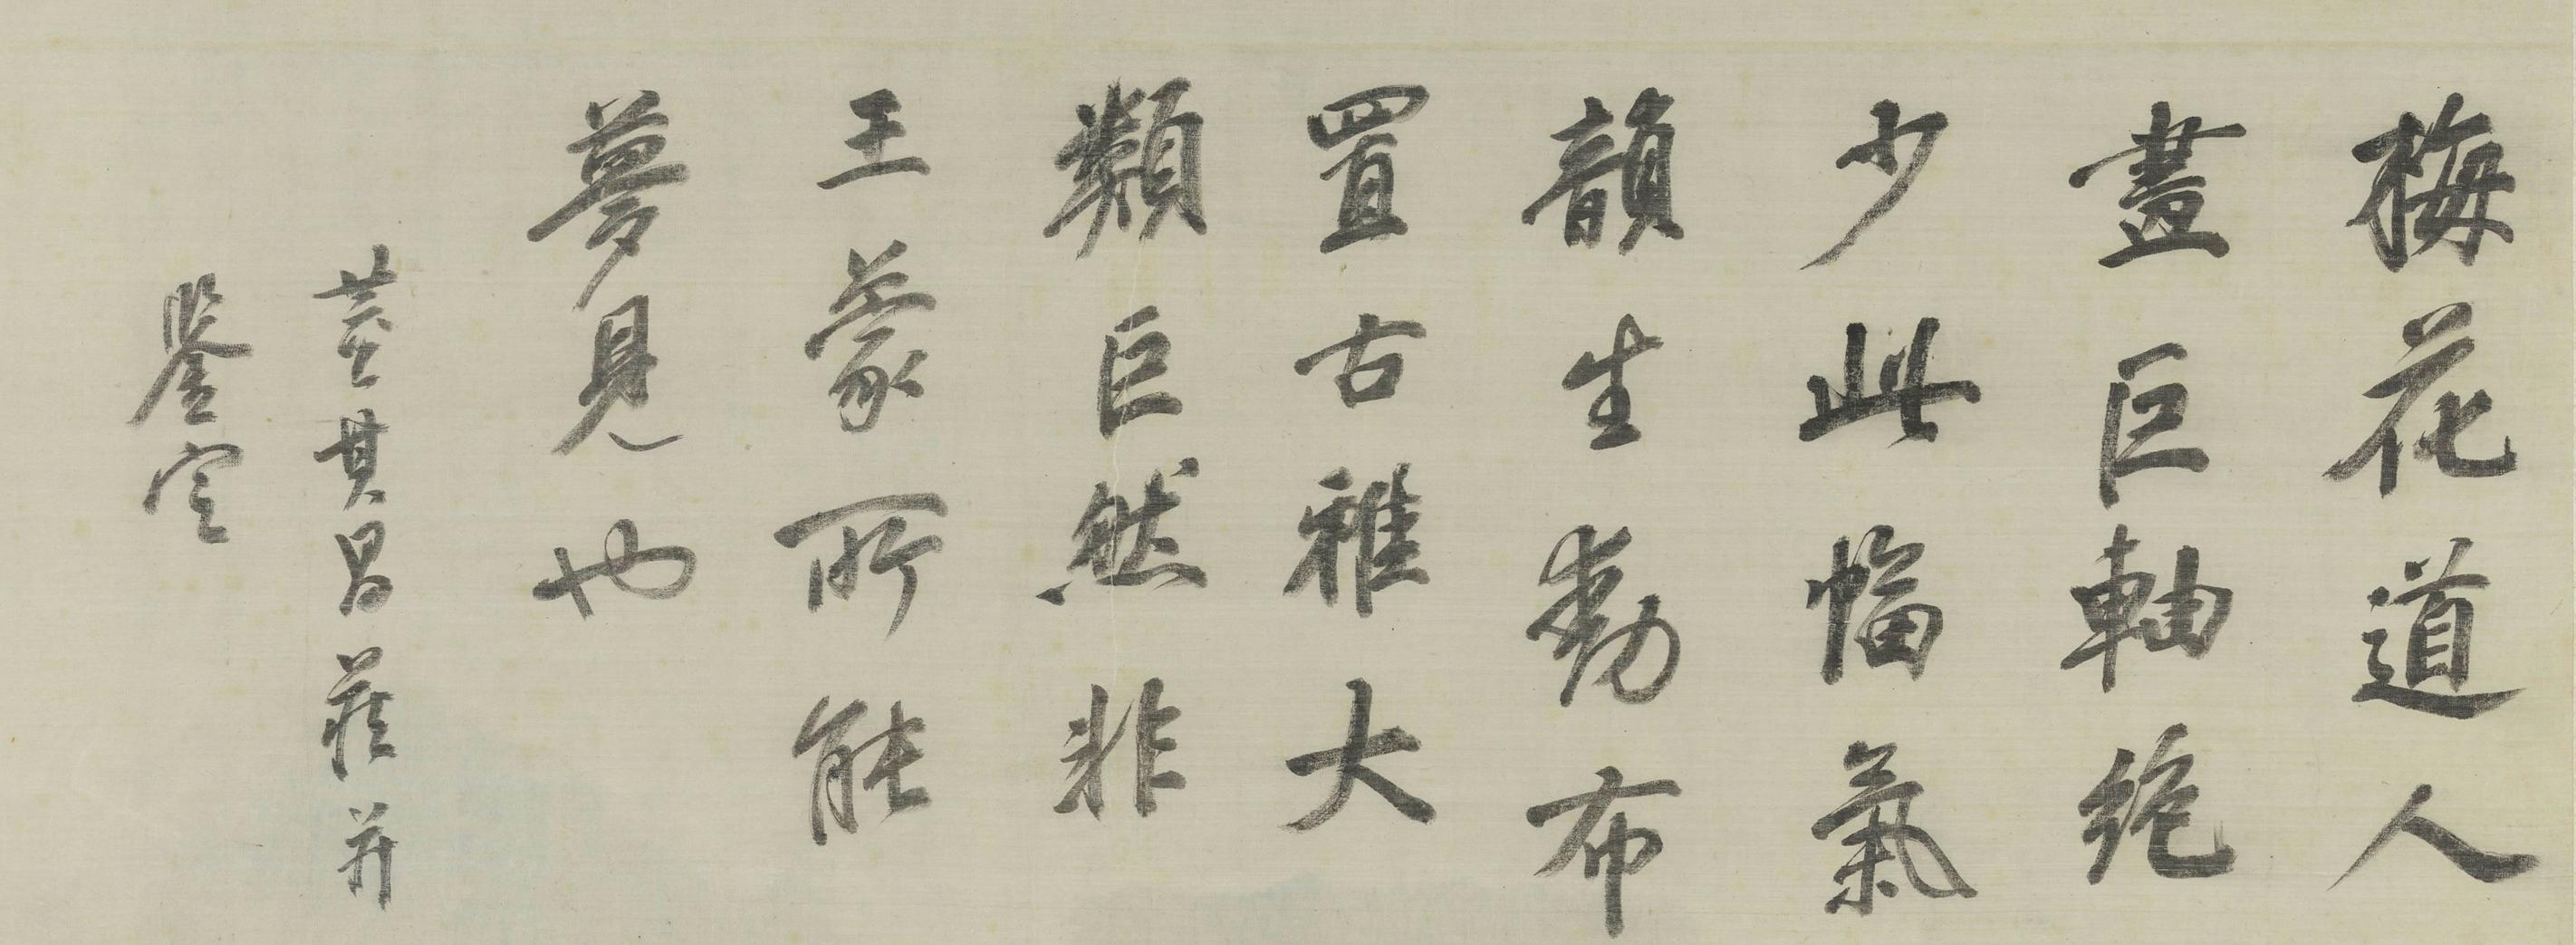 梅花道人
畫巨軸絕
少此幅氣
韻生動布
置古雅大
類巨然非
王蒙所能
夢見也
董其昌藏并
鑒定